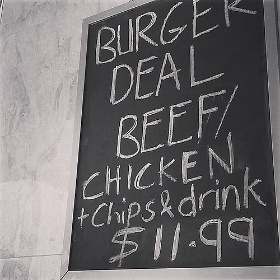 BURGER
DEAL
BEEF/
CHICKEN
+chips & drink
$11.99